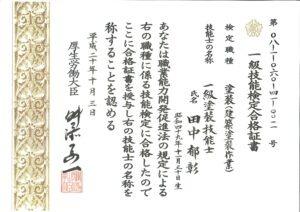 一級技能検定合格証書
検定職種 塗装(建築塗装作業)
技能士の名称 一級塗装技能士
氏名 田中郁彰
あなたは職業能力開発促進法の規定による
右の職種に係る技能検定に合格したので
ここに合格証書を授与し右の技能士の名称を
称することを認める
平成二十年十月三日
厚生労働大臣 舛添要一